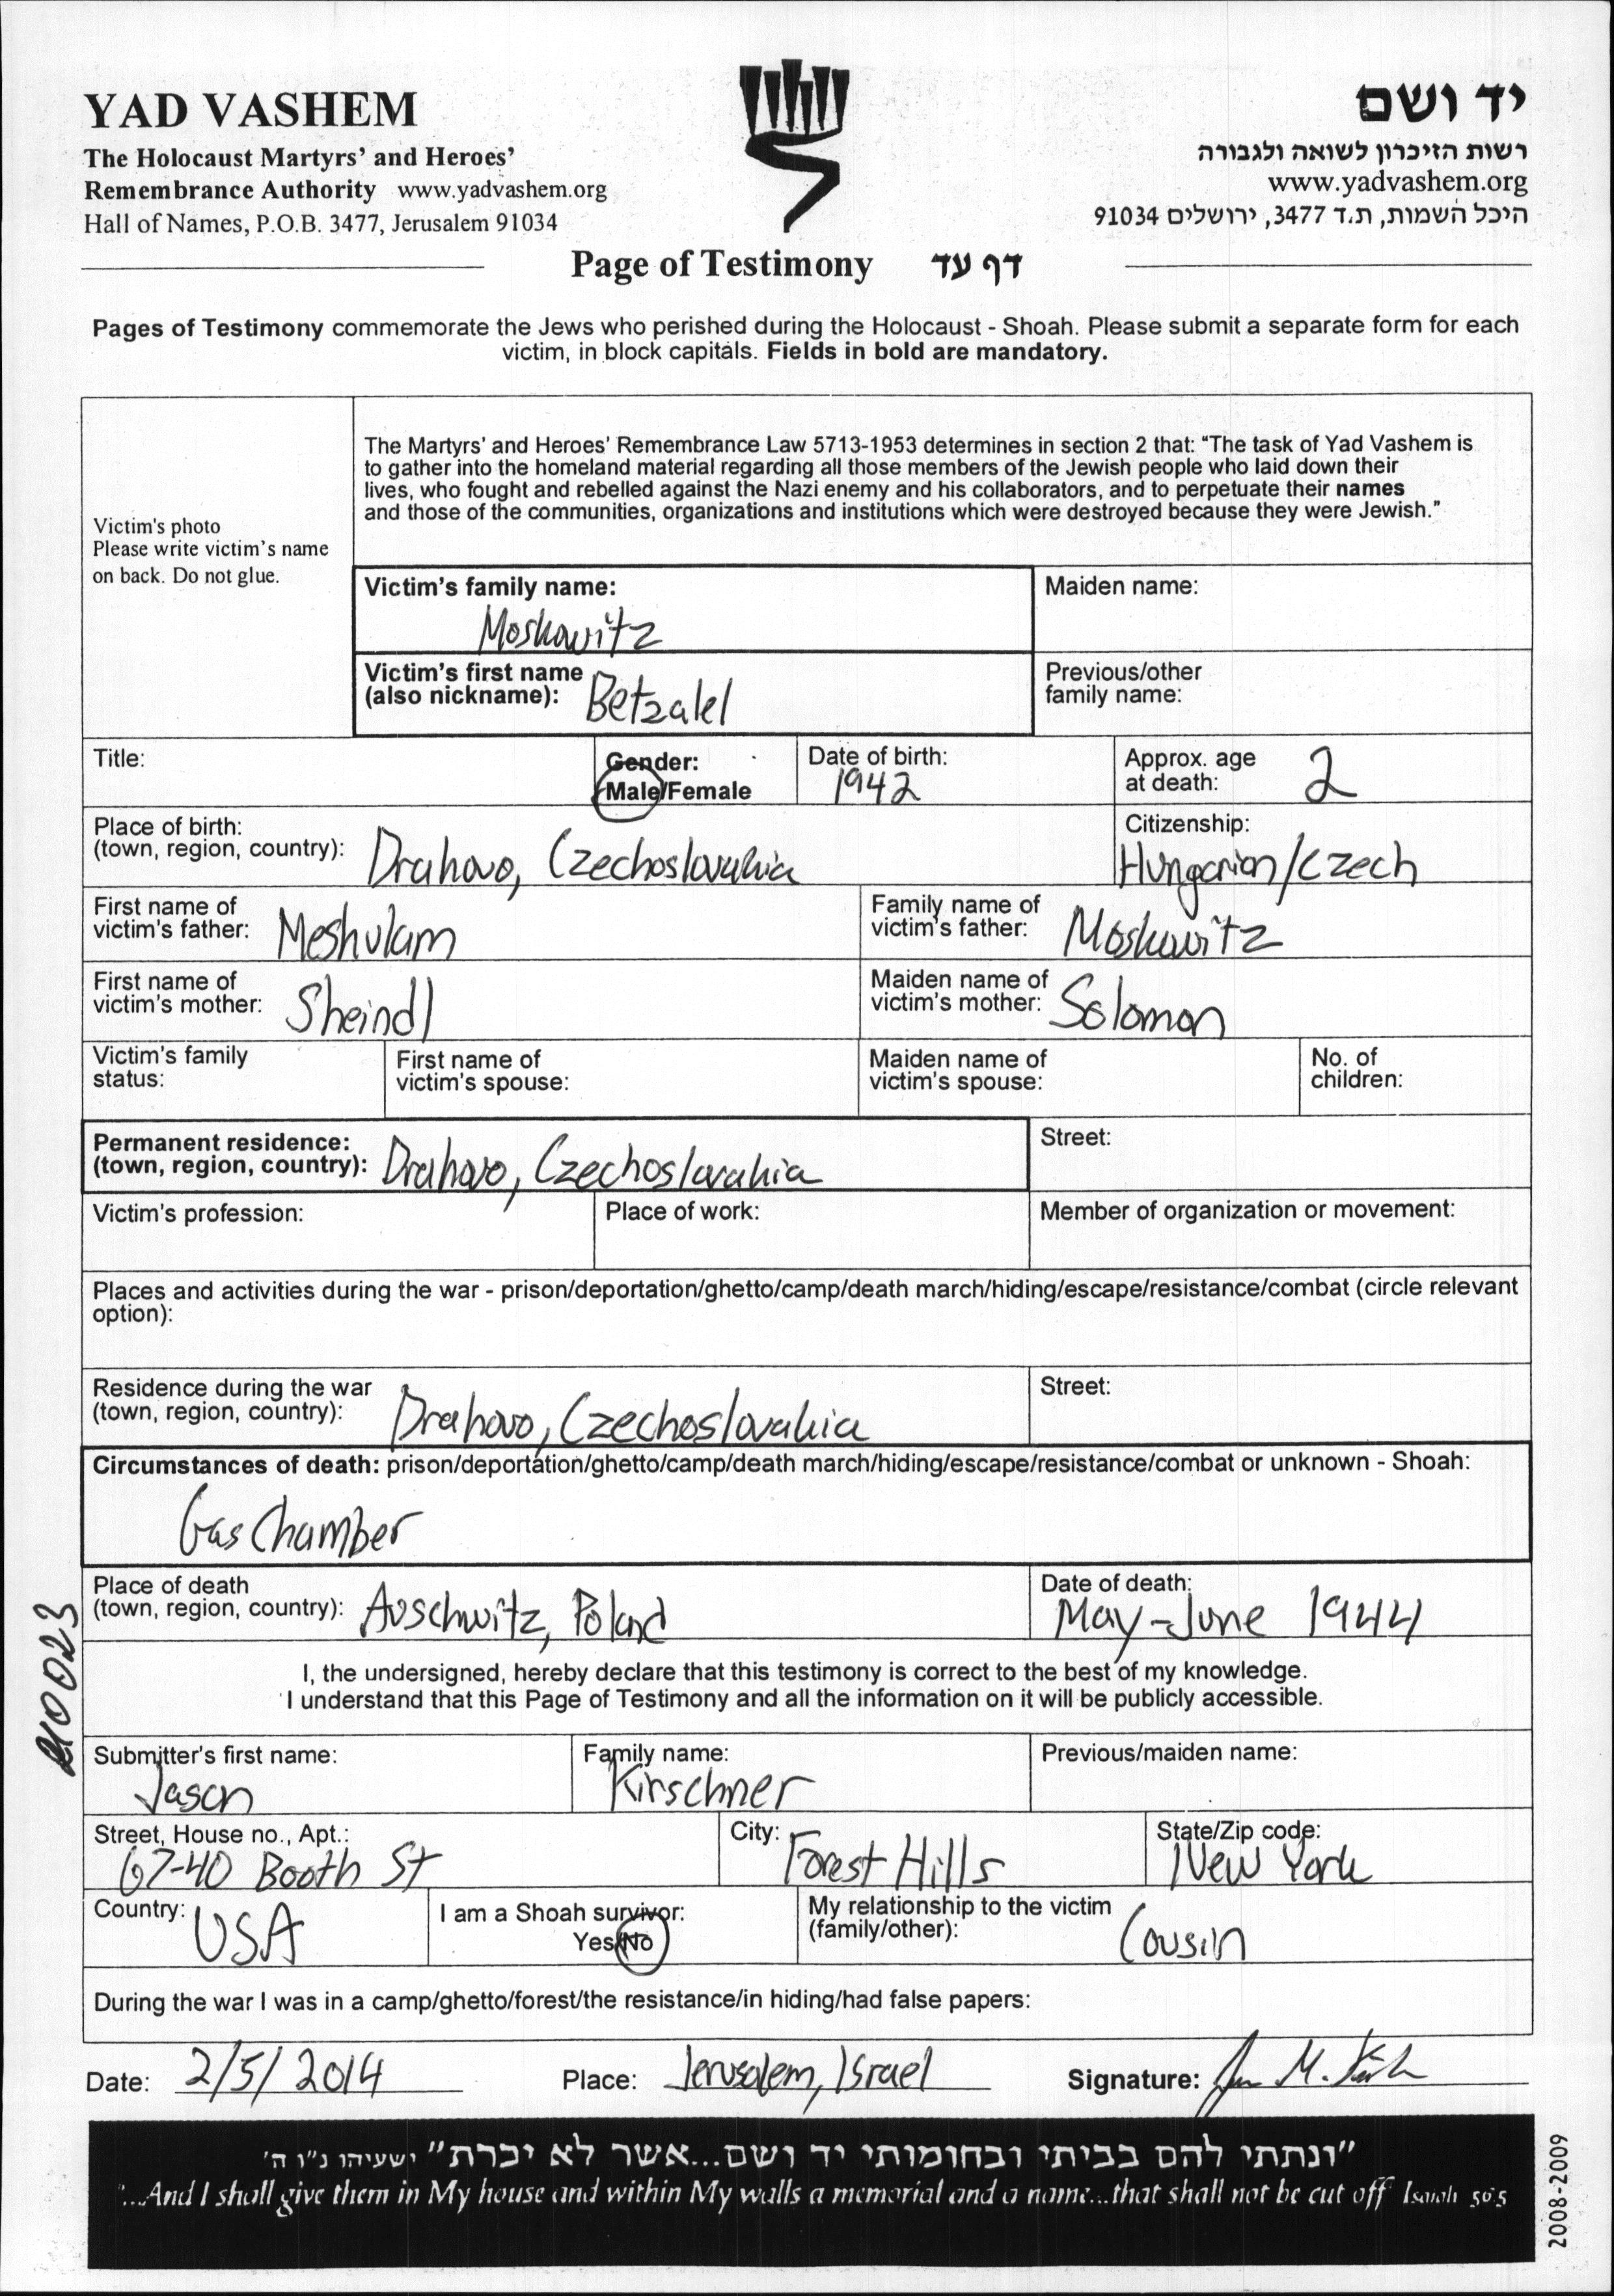 YAD VASHEM
The Holocaust Martyrs' and Heroes'
Remembrance Authority www.yadvashem.org
Hall of Names, P.O.B. 3477, Jerusalem 91034
יד ושם
רשות הזיכרון לשואה ולגבורה
www.yadvashem.org
היכל השמות, ת.ד 3477, ירושלים 91034
Page of Testimony דף עד
Pages of Testimony commemorate the Jews who perished during the Holocaust - Shoah. Please submit a separate form for each
victim, in block capitals. Fields in bold are mandatory.
Victim's photo
Please write victim's name
on back. Do not glue.
The Martyrs' and Heroes' Remembrance Law 5713-1953 determines in section 2 that: "The task of Yad Vashem is
to gather into the homeland material regarding all those members of the Jewish people who laid down their
lives, who fought and rebelled against the Nazi enemy and his collaborators, and to perpetuate their names
and those of the communities, organizations and institutions which were destroyed because they were Jewish."
Victim's family name:
Moskowitz
Maiden name:
Victim's first name
(also nickname): Betzalel
Previous/other
family name:
Title:
Gender:
Male/Female
Date of birth:
1942
Approx. age
at death: 2
Place of birth:
(town, region, country): Drahovo, Czechoslovakia
Citizenship:
Hungarian/Czech
First name of
victim's father: Meshulam
Family name of
victim's father: Moskowitz
First name of
victim's mother: Sheindl
Maiden name of
victim's mother: Solomon
Victim's family
status:
First name of
victim's spouse:
Maiden name of
victim's spouse:
No. of
children:
Permanent residence:
(town, region, country): Drahovo, Czechoslovakia
Street:
Victim's profession:
Place of work:
Member of organization or movement:
Places and activities during the war - prison/deportation/ghetto/camp/death march/hiding/escape/resistance/combat (circle relevant
option):
Residence during the war
(town, region, country): Drahovo, Czechoslovakia
Street:
Circumstances of death: prison/deportation/ghetto/camp/death march/hiding/escape/resistance/combat or unknown - Shoah:
Gas Chamber
Place of death
(town, region, country): Auschwitz, Poland
Date of death:
May-June 1944
I, the undersigned, hereby declare that this testimony is correct to the best of my knowledge.
I understand that this Page of Testimony and all the information on it will be publicly accessible.
Submitter's first name:
Jason
Family name:
Kirschner
Previous/maiden name:
Street, House no., Apt.:
67-40 Booth St
City:
Forest Hills
State/Zip code:
New York
Country: USA
I am a Shoah survivor:
Yes/No
My relationship to the victim
(family/other): Cousin
During the war I was in a camp/ghetto/forest/the resistance/in hiding/had false papers:
Date: 2/5/2014 Place: Jerusalem, Israel Signature:
"ונתתי להם בביתי ובחומותי יד ושם...אשר לא יכרת" ישעיהו נ"ו ה'
"...And I shall give them in My house and within My walls a memorial and a name...that shall not be cut off" Isaiah 56:5
2008-2009